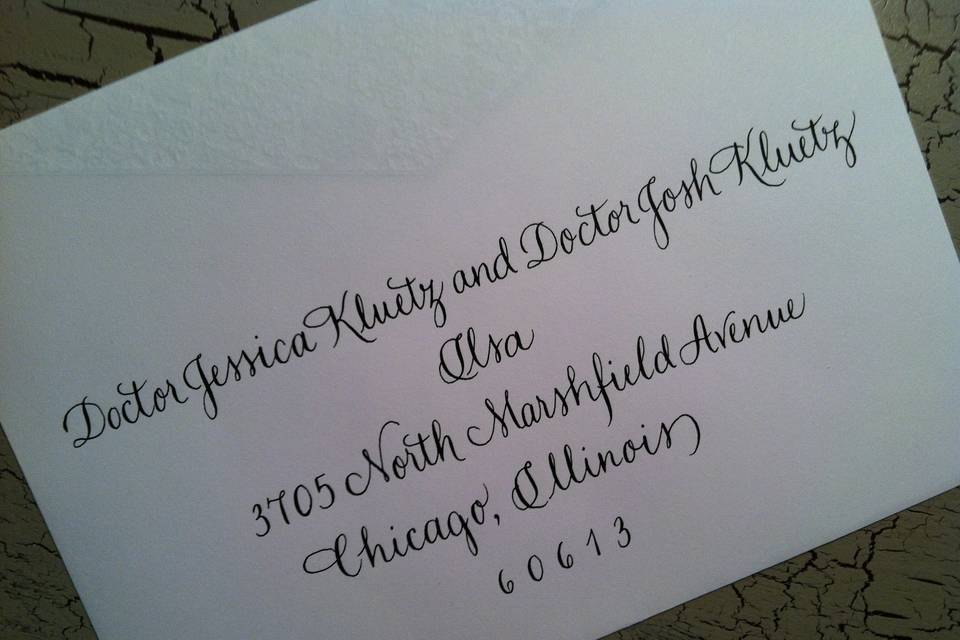 Doctor Jessica Kluetz and Doctor Josh Kluetz
Ilsa
3705 North Marshfield Avenue
Chicago, Illinois
60613